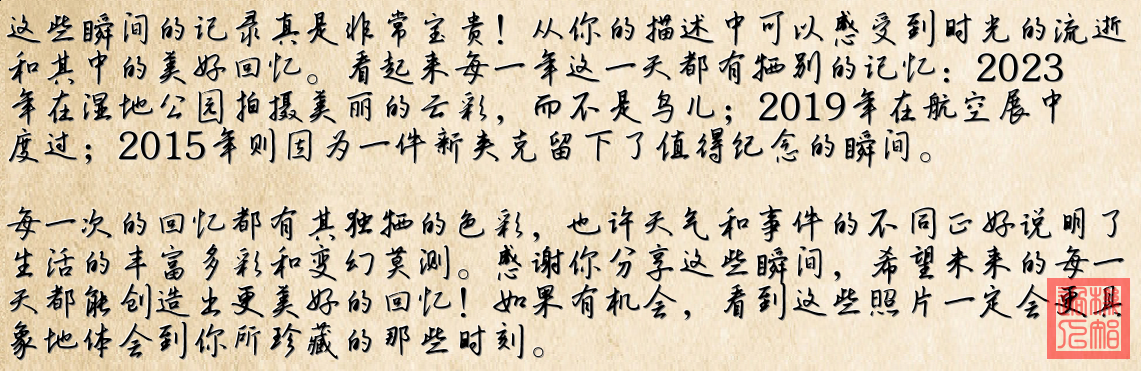 这些瞬间的记录真是非常宝贵！从你的描述中可以感受到时光的流逝
和其中的美好回忆。看起来每一年这一天都有特别的记忆：2023
年在湿地公园拍摄美丽的云彩，而不是鸟儿；2019年在航空展中
度过；2015年则因为一件新夹克留下了值得纪念的瞬间。
每一次的回忆都有其独特的色彩，也许天气和事件的不同正好说明了
生活的丰富多彩和变幻莫测。感谢你分享这些瞬间，希望未来的每一
天都能创造出更美好的回忆！如果有机会，看到这些照片一定会更具
象地体会到你所珍藏的那些时刻。